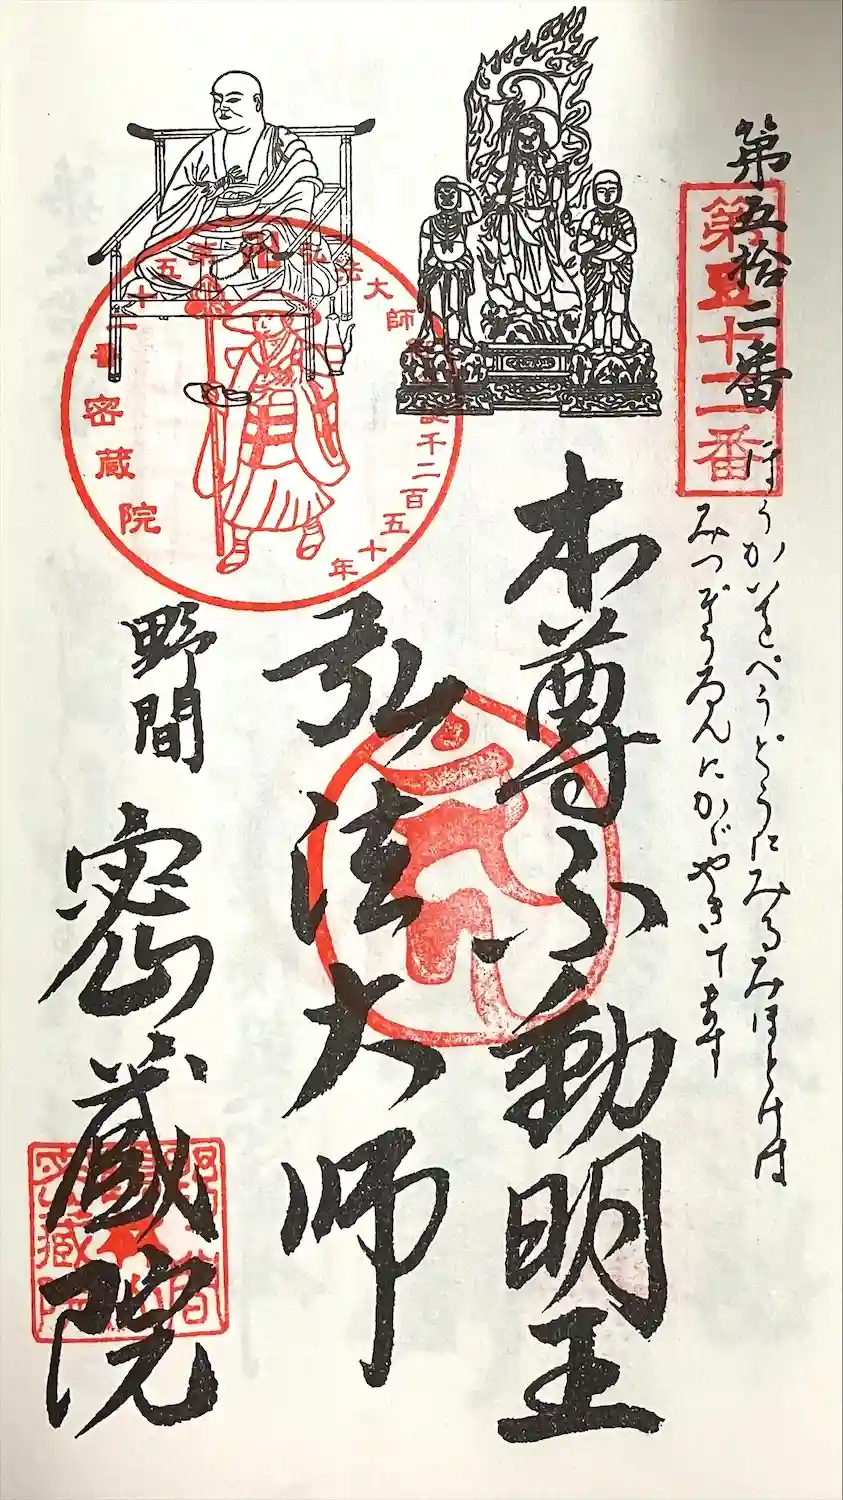 第五拾二番
第五十二番
ほうかいをべうどうにみるみほとけは
みつぞうゐんにかがやきてます
本尊不動明王
弘法大師
野間
密蔵院
弘法大師
千二百五十年
密蔵院